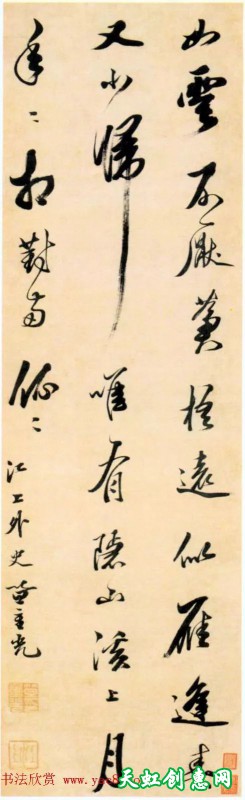 如雲不厭蒼梧遠似雁逢春
又北歸唯有隱山溪上月
年〻相對兩依〻
江上外史笪重光
书法欣赏 www.yac8.com
天虹创惠网